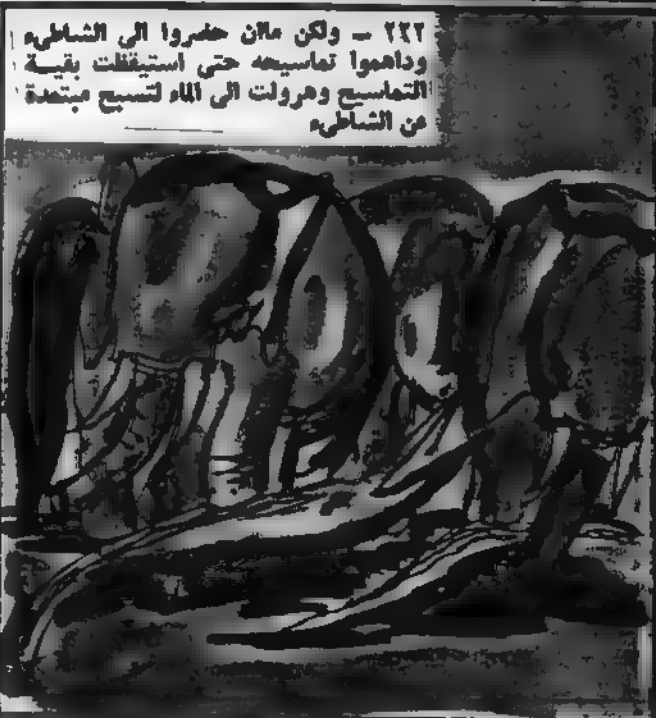 ٢٤٢ ـ ولكن ماان حضروا الى الشاطىء
وداهموا تماسيحه حتى استيقظت بقيـة
التماسيح وهرولت الى الماء لتسبح مبتعدة
عن الشاطىء